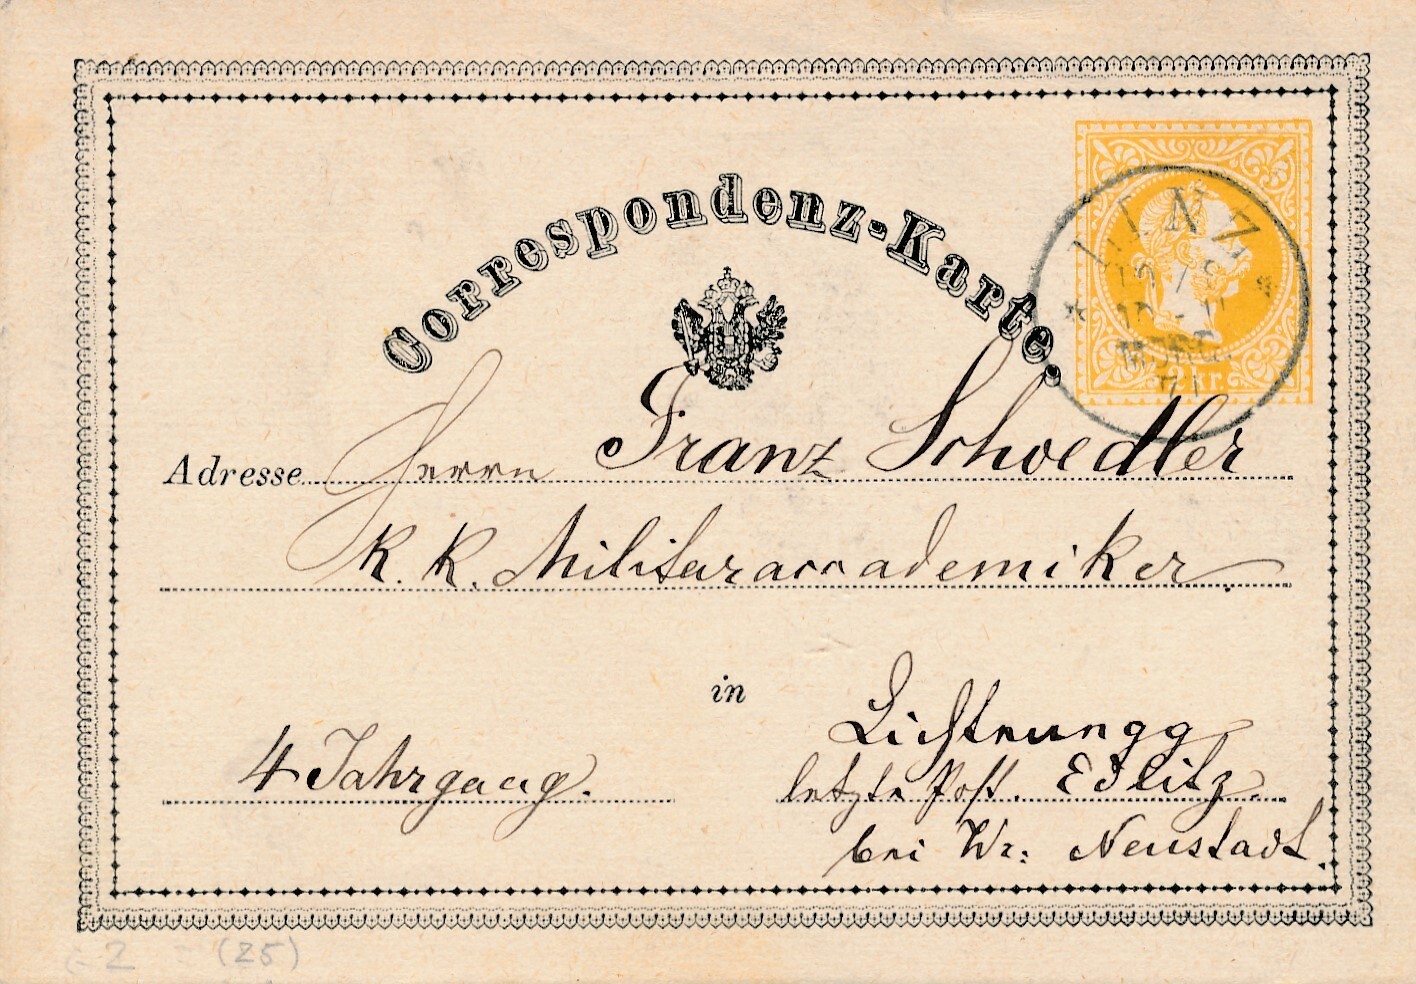 Correspondenz-Karte.
LINZ
71
2 kr.
Adresse Herrn Franz Schoedler
K. K. Militäraccademiker
in
4 Jahrgang.
letzte Post. Edlitz.
bei Wr: Neustadt.
(25)